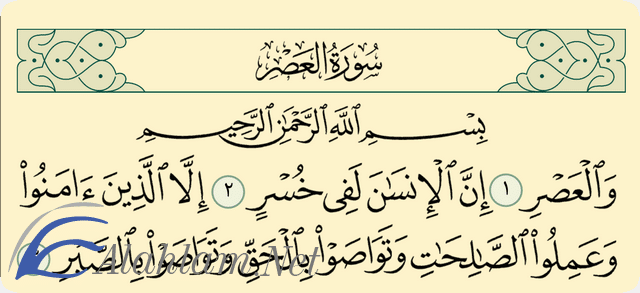 سُورَةُ العَصْرِ
بِسْمِ ٱللَّهِ ٱلرَّحْمَٰنِ ٱلرَّحِيمِ
وَٱلْعَصْرِ ١ إِنَّ ٱلْإِنسَٰنَ لَفِى خُسْرٍ ٢ إِلَّا ٱلَّذِينَ ءَامَنُوا۟
وَعَمِلُوا۟ ٱلصَّٰلِحَٰتِ وَتَوَاصَوْا۟ بِٱلْحَقِّ وَتَوَاصَوْا۟ بِٱلصَّبْرِ
Alahlam.Net